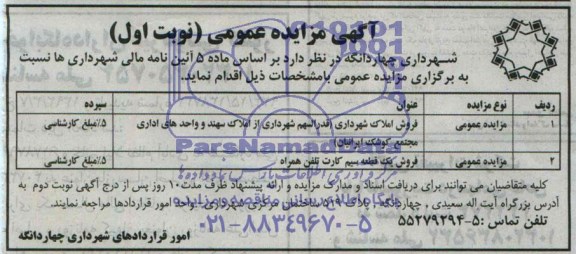 آگهی مزایده عمومی (نوبت اول)
شهرداری چهاردانگه در نظر دارد بر اساس ماده ۵ آئین نامه مالی شهرداری ها نسبت
به برگزاری مزایده عمومی بامشخصات ذیل اقدام نماید.
ردیف نوع مزایده عنوان سپرده
۱ مزایده عمومی فروش املاک شهرداری (قدرالسهم شهرداری از املاک سهند و واحد های اداری ۵٪مبلغ کارشناسی
مجتمع کوشک ایرانیان)
۲ مزایده عمومی فروش یک قطعه سیم کارت تلفن همراه ۵٪مبلغ کارشناسی
کلیه متقاضیان می توانند برای دریافت اسناد و مدارک مزایده و ارائه پیشنهاد ظرف مدت ۱۰ روز پس از درج آگهی نوبت دوم به
آدرس بزرگراه آیت اله سعیدی , چهاردانگه , پلاک ۵۱۹ ساختمان مرکزی شهرداری , واحد امور قراردادها مراجعه نمایند.
تلفن تماس :۵-۵۵۲۷۹۲۹۴
امور قراردادهای شهرداری چهاردانگه
ParsNamadData
۰۲۱-۸۸۳۴۹۶۷۰-۵